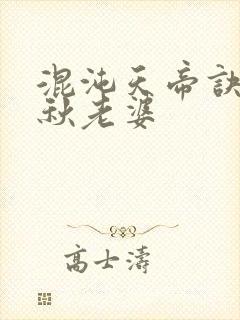 混沌天帝訣
秋老婆
高士濤